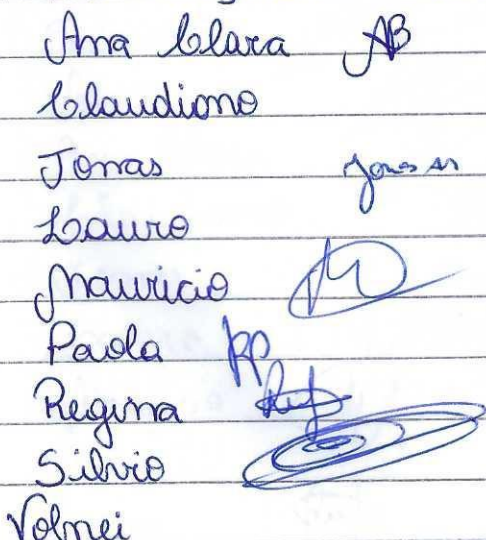 Ana Clara AB
Claudiomo
Jonas Jonas
Lauro
Mauricio
Paola
Regina
Silvio
Volnei